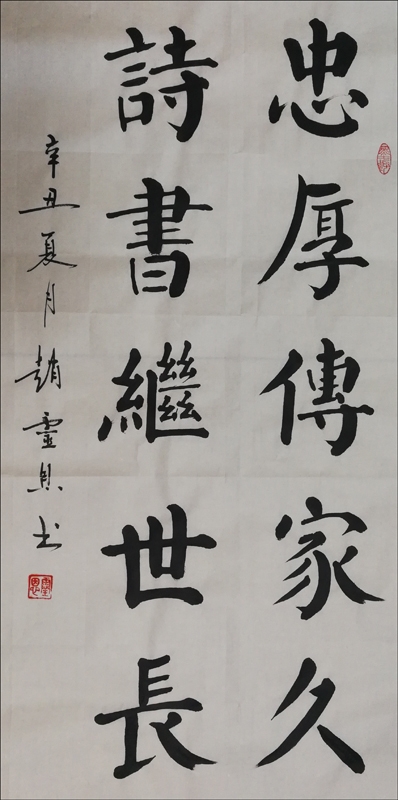 忠厚傳家久
詩書繼世長
辛丑夏月趙靈恩书